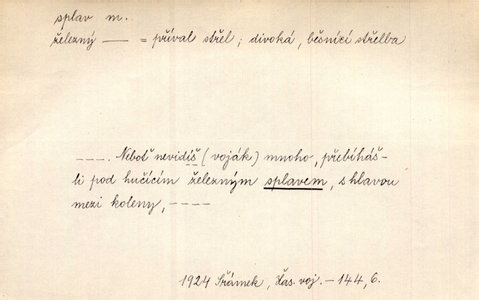 splav m.
železný —— = příval střel; divoká, běsnící střelba
----. Neboť nevidíš (voják) mnoho, přebíháš-
li pod hučícím železným splavem, s hlavou
mezi koleny, ----
1924 Šrámek, Žas. voj. – 144, 6.